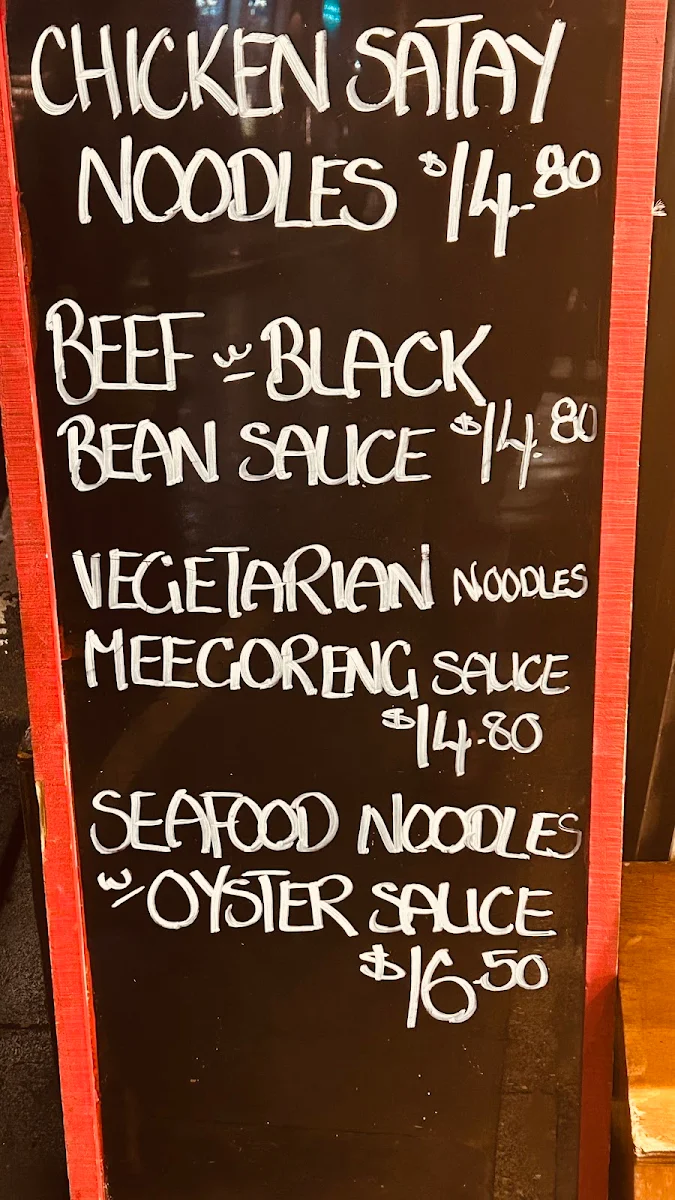 CHICKEN SATAY
NOODLES $14.80
BEEF w/ BLACK
BEAN SAUCE $14.80
VEGETARIAN NOODLES
MEEGORENG SAUCE
$14.80
SEAFOOD NOODLES
w/ OYSTER SAUCE
$16.50